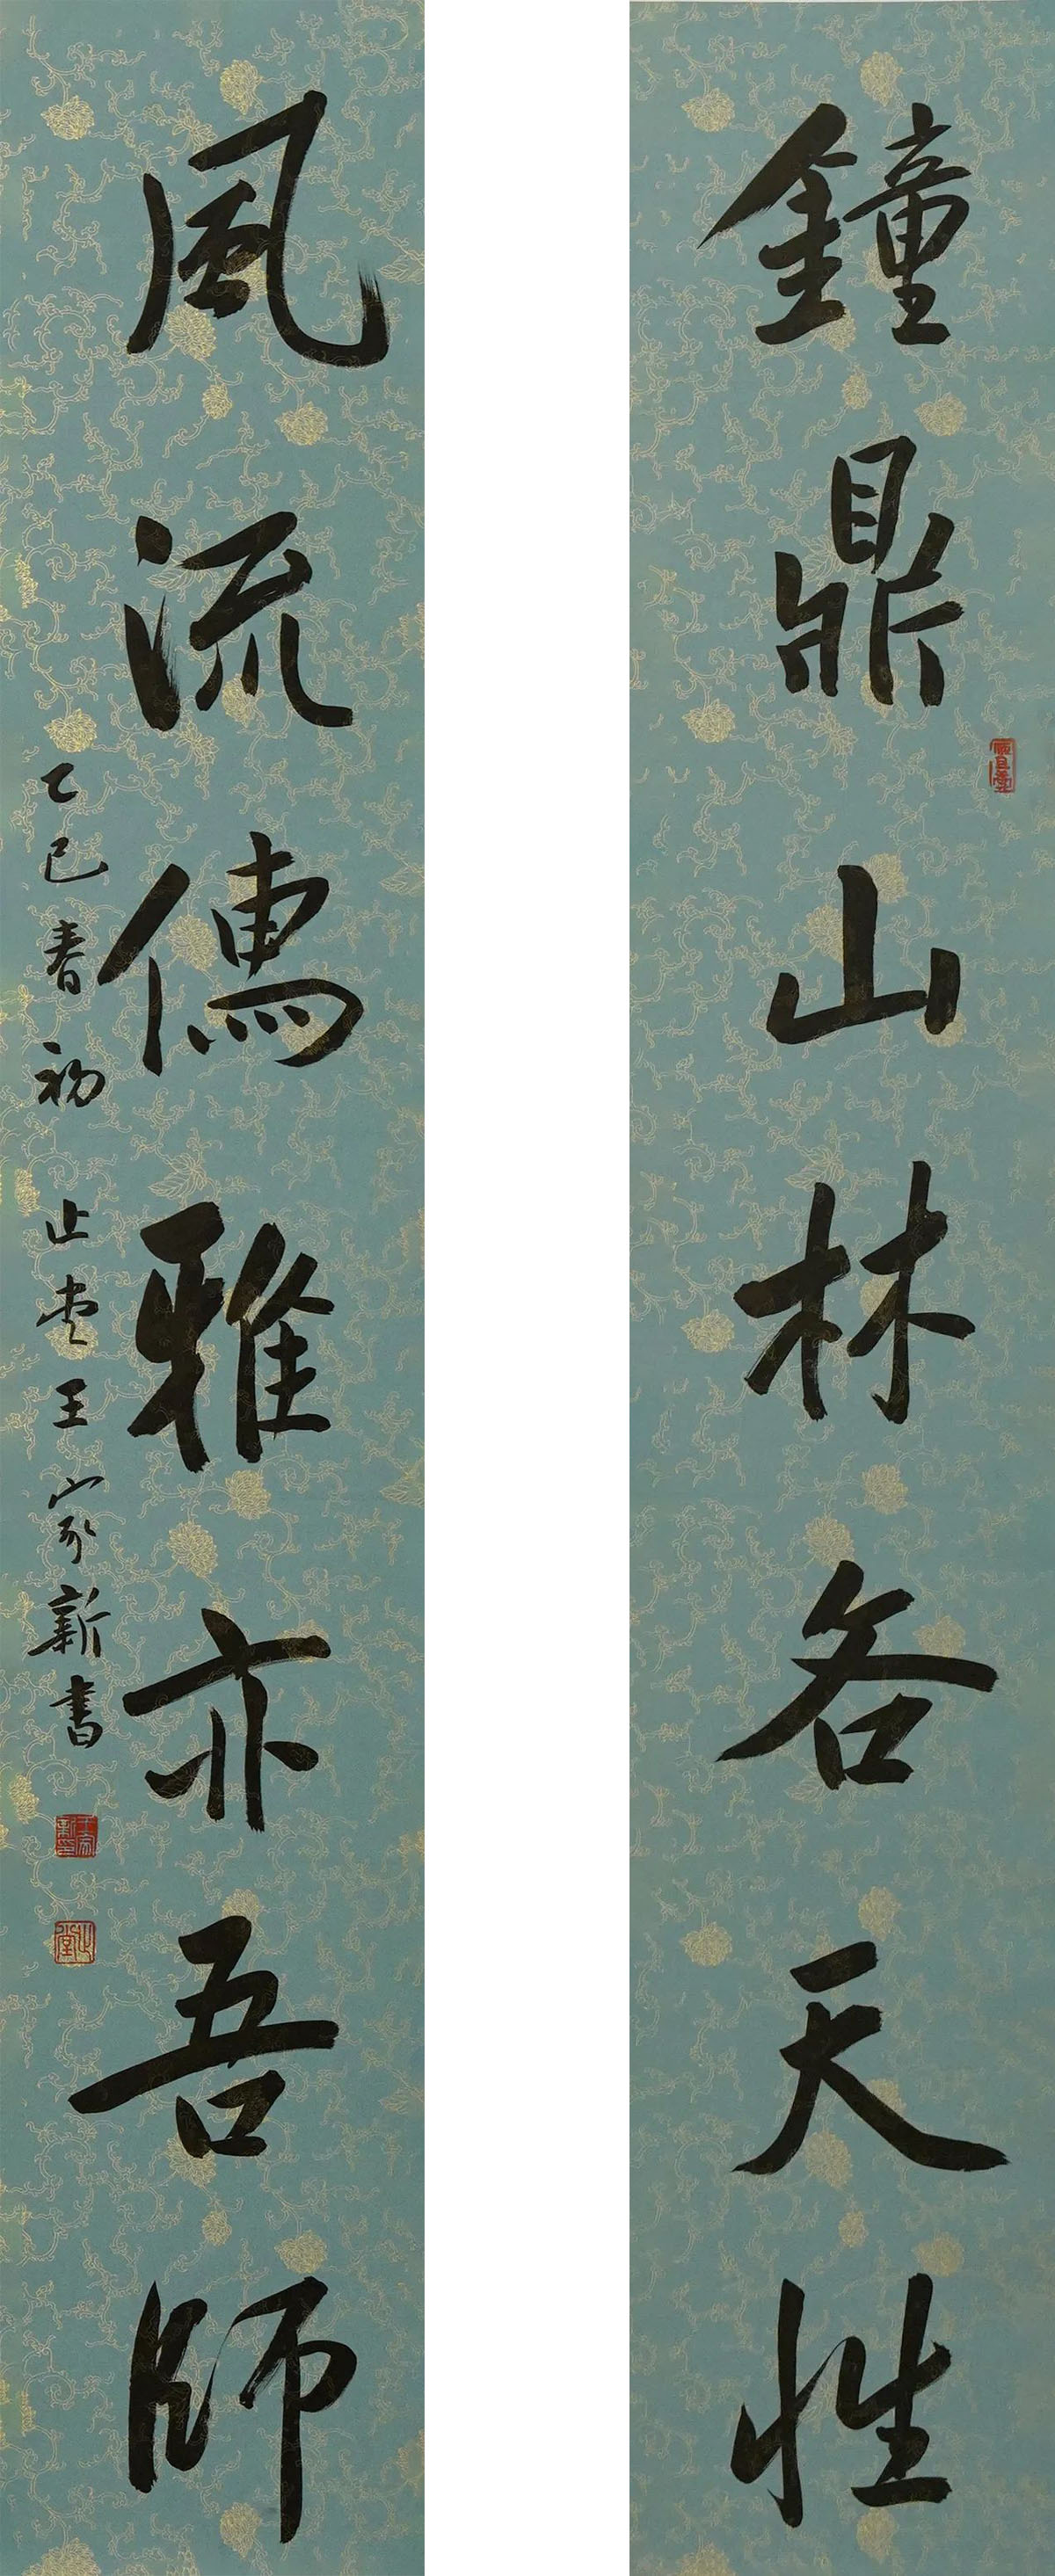 鐘鼎山林各天性
風流儒雅亦吾師
乙巳春初 止堂王家新書
止堂